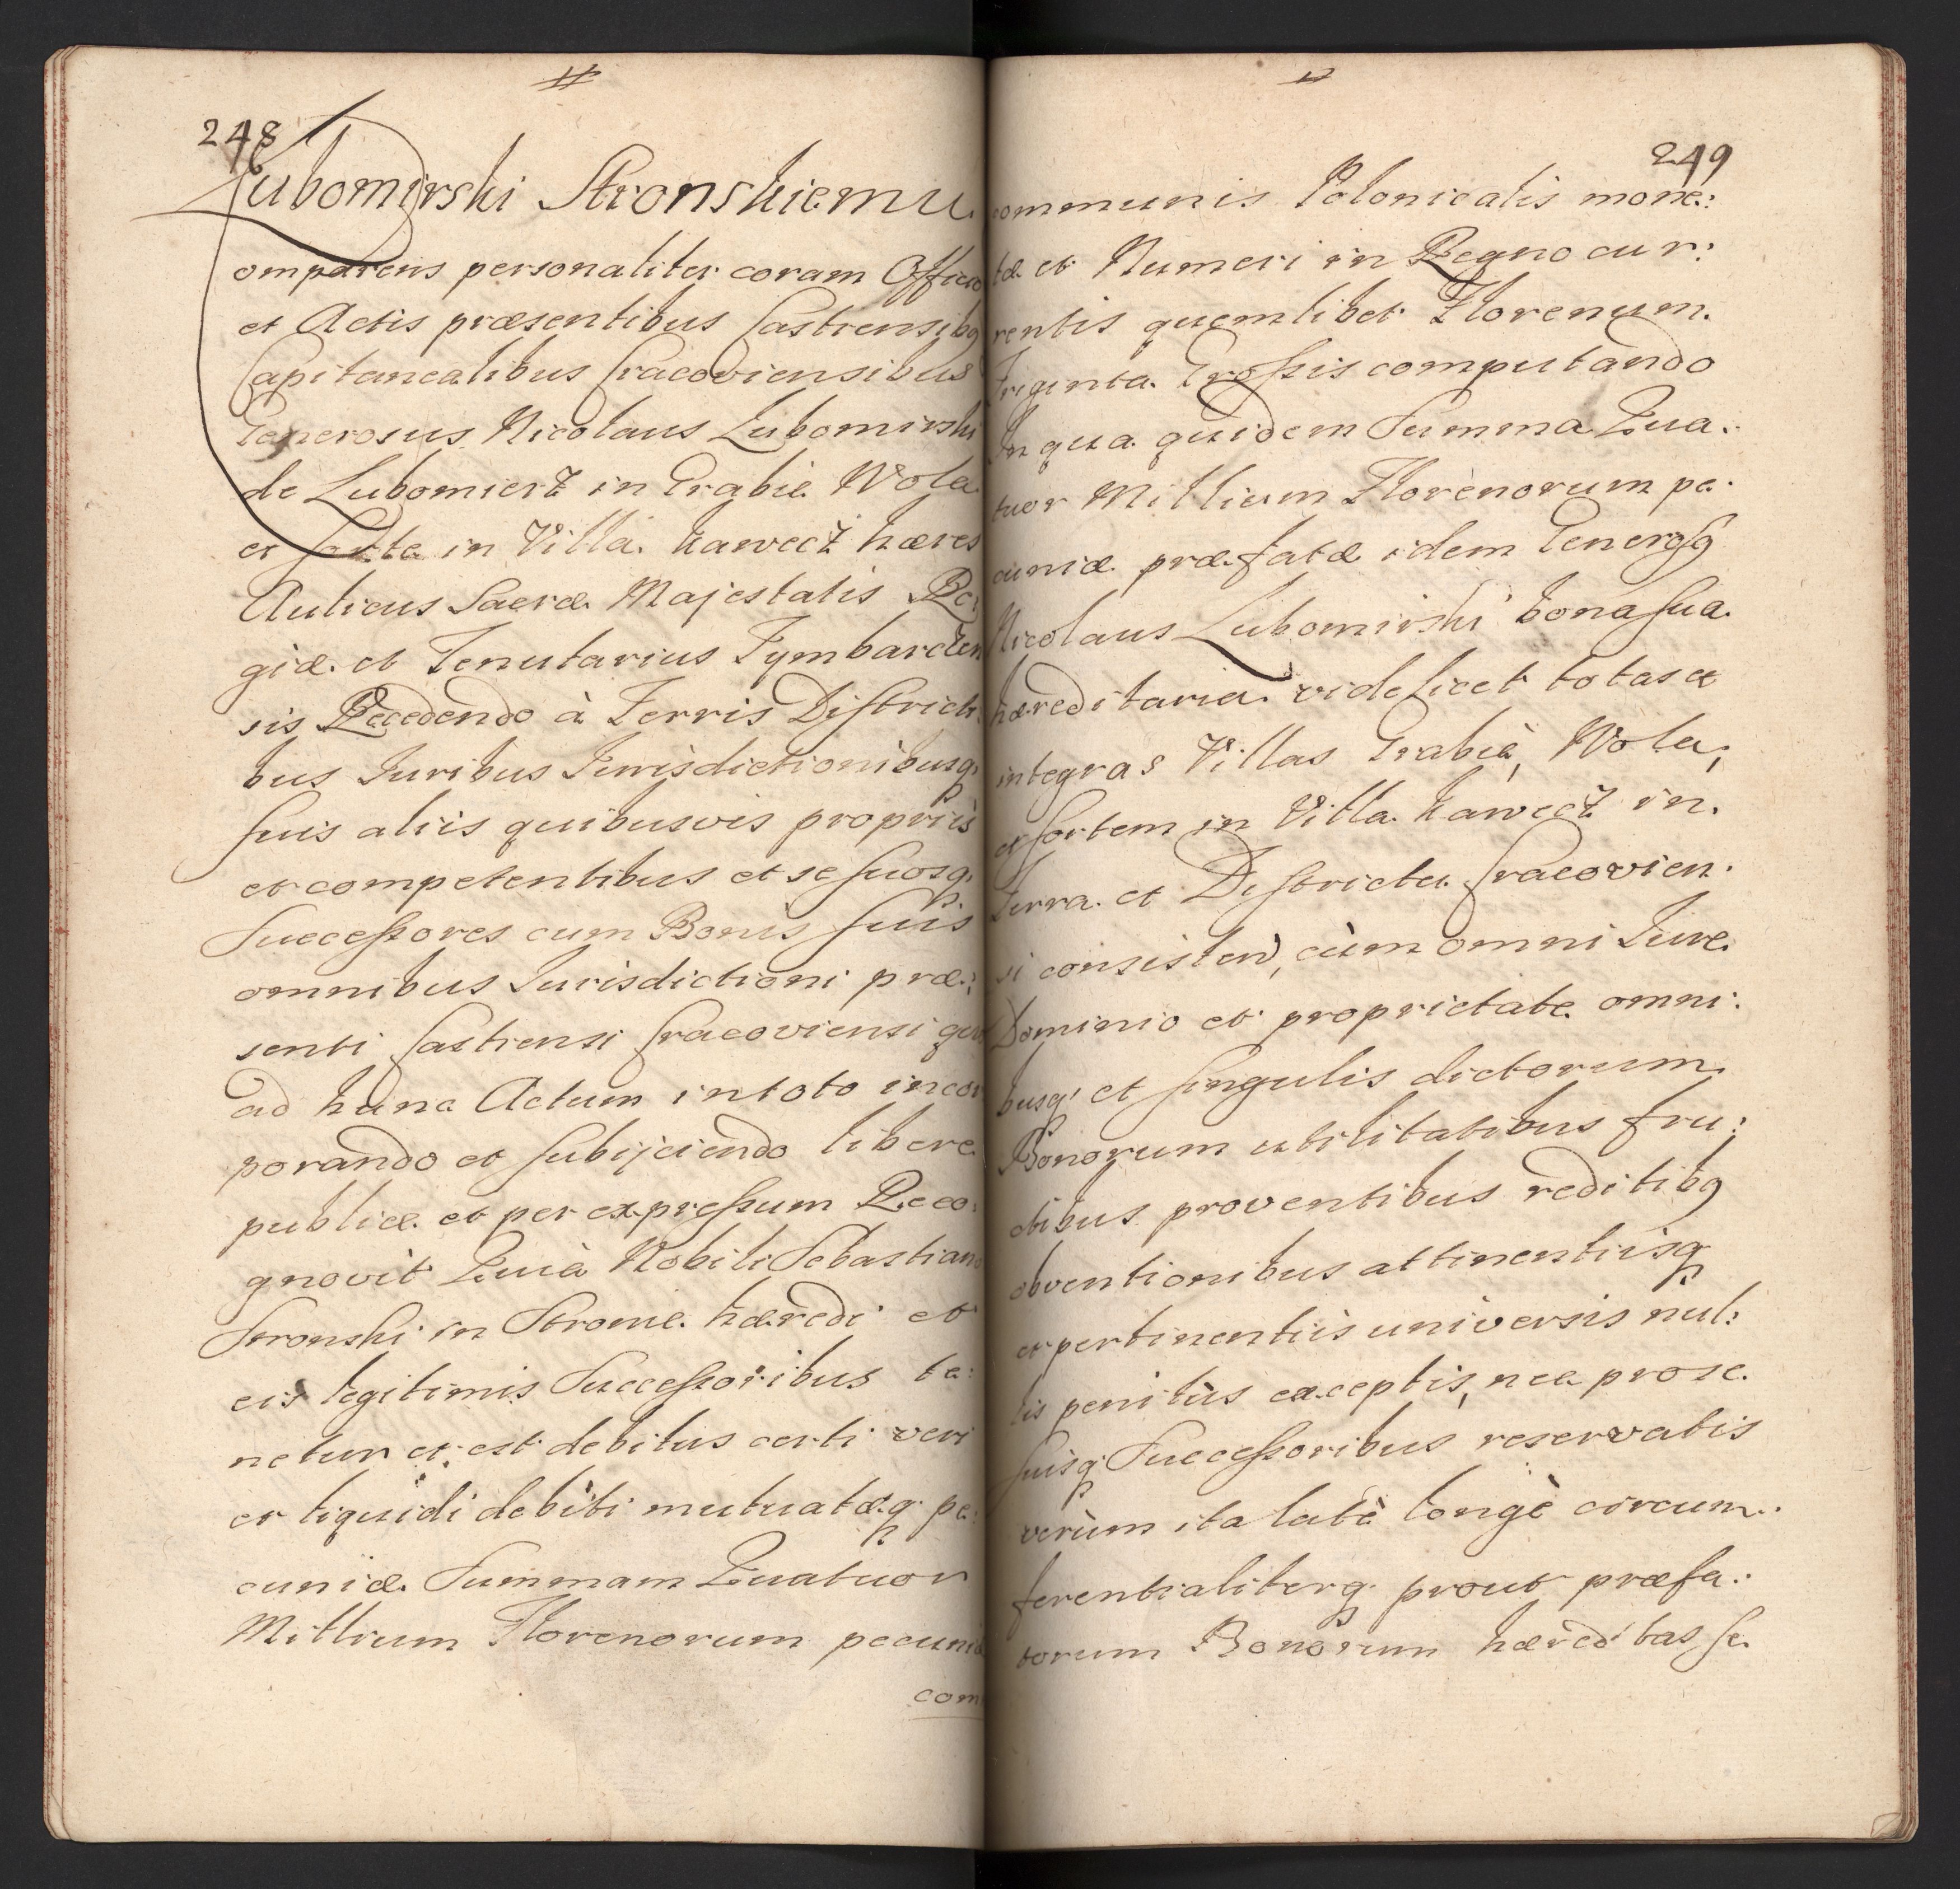 248
Lubomirski Stronskiemu
Comparens personaliter coram Officio
et Actis præsentibus Castrensibq
Capitanealibus Cracoviensibus
Generosus Nicolaus Lubomirski
de Lubomierz in Grabie Wola
et sorte in Villa Kawecz hæres
Aulicus Sacræ Majestatis Re:
giæ et Tenutarius Tymbarczen
sis Recedendo à Terris District:
bus Iuribus Iurisdictionibusq,
suis aliis quibusvis propriis
et competentibus et se suosq,
Successores cum Bonis suis
omnibus Iurisdictioni præ:
senti Castrensi Cracoviensi quo
ad hunc Actum in toto incor
porando et subijciendo libere
publice et per expressum Reco:
gnovit Quià Nobili Sebastiano
Stronski in Stronie hæredi et
eis legitimis Successoribus te:
netur et est debitus certi veri
et liquidi debiti mutuatæq, pe:
cuniæ Summam Quatuor
Millium Florenorum pecuniæ
com
249
communis Polonicalis mone:
tæ et Numeri in Regno cur:
rentis quemlibet Florenum
Triginta Grossis computando
In qua quidem Summa Qua:
tuor Millium Florenorum pe:
cuniæ præfatæ idem Generosq
Nicolaus Lubomirski bona sua
hæreditaria videlicet totas et
integras Villas Grabie, Wola,
et sortem in Villa Kawecz in
Terra et Districtu Cracovien:
si consisten, cùm omni Iure
Dominio et proprietate omni:
busq, et singulis dictorum
Bonorum utilitatibus fru:
ctibus proventibus reditibq
obventionibus attinentiisq,
et pertinentiis universis nul:
lis penitùs exceptis, nec pro se
suisq, Successoribus reservatis
verùm ita latè longè circum:
ferentialiterq, prout præfa:
torum Bonorum hæreditas se